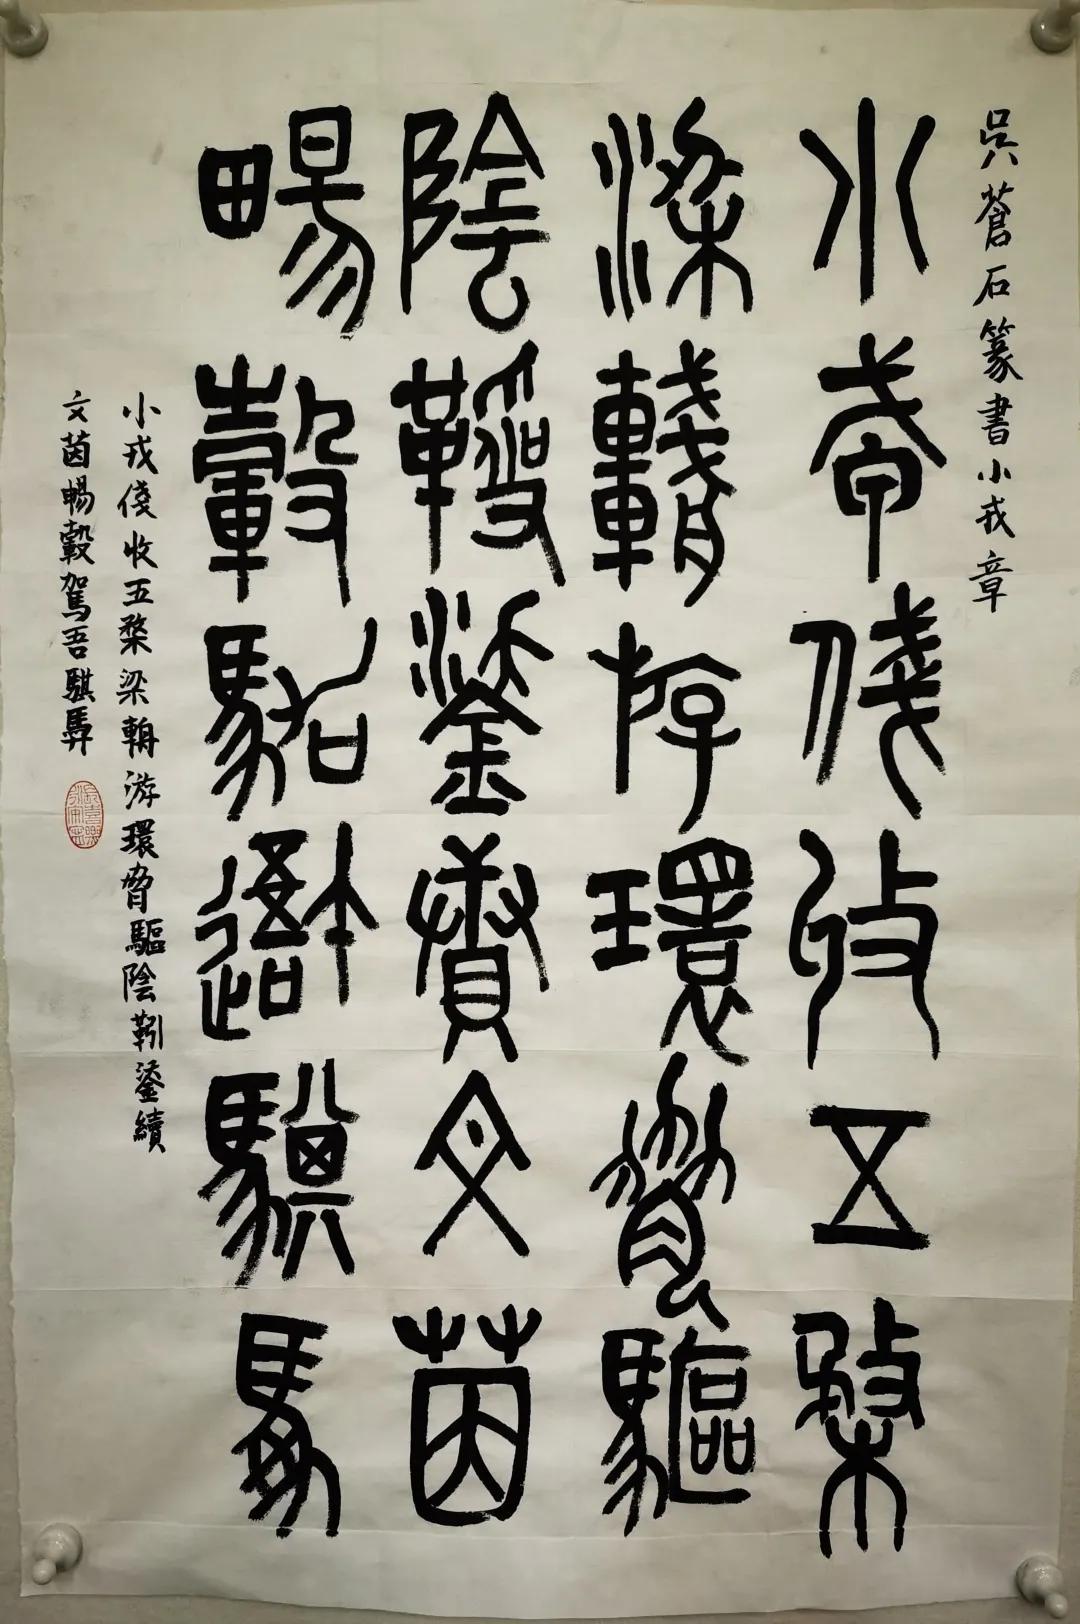 吴蒼石篆書小戎章
小戎俴收五楘
梁輈游環脅驅
陰靷鋈續文茵
暢轂駕吾騏馵
小戎俴收五楘梁輈游環脅驅陰靷鋈續
文茵暢轂駕吾騏馵